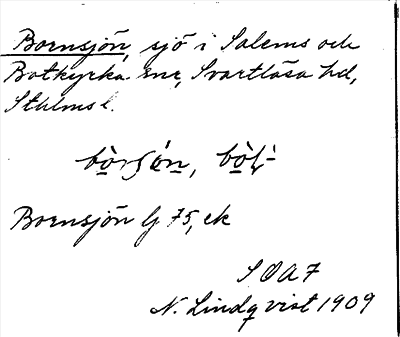 Bornsjön, sjö i Salems och
Botkyrka snr, Svartlösa hd,
Sthlms l.
Bornsjön Gj 75, ek
S O A 7
N. Lindqvist 1909